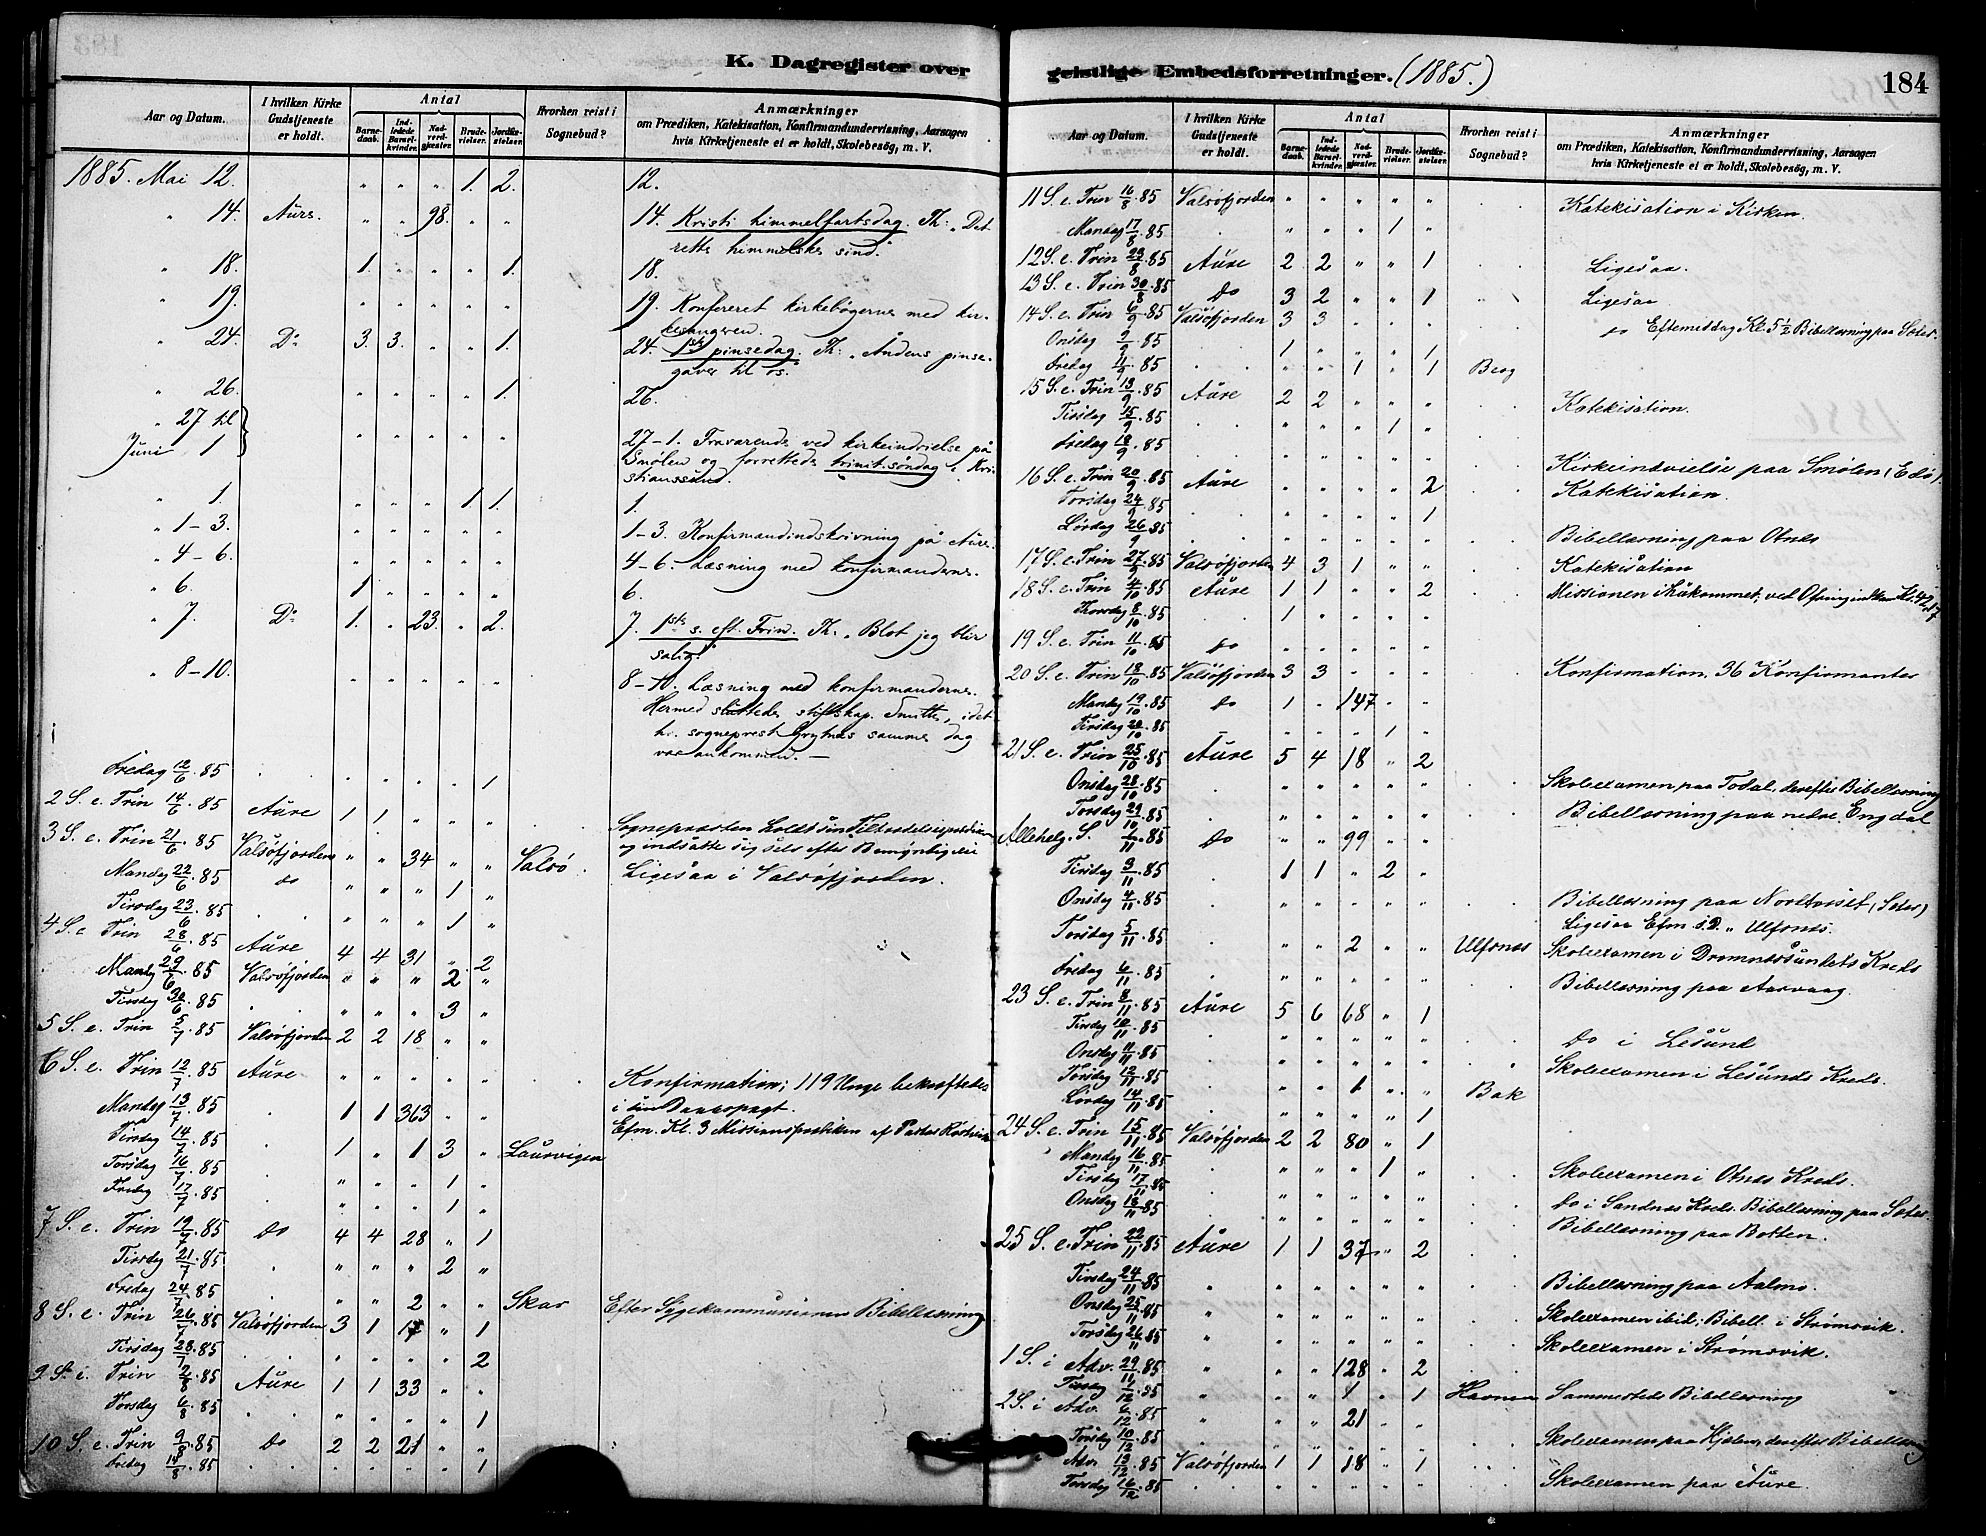 K. Dagregister over
geistlige Embedsforretninger. (1885.)
184
Aar og Datum.
I hvilken Kirke Gudstjeneste er holdt.
Antal
Barnedaab.
Indledede Barselkvinder.
Nadverdgjæster.
Brudevielser.
Jordfæstelser.
Hvorhen reist i Sognebud?
Anmærkninger
om Prædiken, Katekisation, Konfirmandundervisning, Aarsagen
hvis Kirketjeneste ei er holdt, Skolebesøg, m. V.
1885. Mai 12. " " " 1. 2. 12.
" 14. Aure. " " 98. " " 14. Kristi himmelfartsdag. Th: "Det
rette himmelske sind."
" 18. 1. " " " 1. 18.
" 19. " " " " " 19. Konfereret kirkebøgerne med kir-
kesangeren.
" 24. Do 3. 3. " " 1. 24. 1ste pinsedag. Th: "Andens pinse-
gaver til os."
" 26. " " " " 1. 26.
" 27 til
Juni 1 " " " " " 27-1. Fraværende ved kirkeindvielse på
Smølen og forrettede trinit. søndag i Kri-
stianssund.
" 1. " " " 1 1. 1.
" 1-3. " " " " " 1-3. Konfirmandindskrivning på Aure.
" 4-6. " " " " " 4-6. Læsning med konfirmanderne.
" 6. 1 " " " " 6.
" 7. Do 1. " 23. " 2. 7. 1ste s. eft. Trin. Th: "Blot jeg blir
salig."
" 8-10. " " " " " 8-10. Læsning med konfirmanderne.
Hermed sluttede stiftskap. Smitt, idet
hr. sogneprest Grytnes samme dag
var ankommen. —
Fredag 12/6 . 85 " " " " 1
2 S. e. Trin 14/6 . 85 Aure 1 1 " " " Sognepræsten holdt sin Tiltrædelsesprædiken
og indsatte sig selv efter Bemyndigelse
3 S. e. Trin 21/6 . 85 Valsøfjorden " " 34 " " Valsø. Ligesaa i Valsøfjorden.
Mandag 22/6 . 85 do " " " 1 "
Tirsdag 23/6 . 85 " " " 1 "
4 S. e Trin 28/6 . 85 Aure 4 4 31 " 2
Mandg 29/6 . 85 Valsøfjorden " " " 2 "
Tirsdag 30/6 . 85 " " " 3 "
5 S. e. Trin 5/7 . 85 Valsøfjorden 2 2 18 " "
6 S. e. Trin 12/7 . 85 Aure " " " " " Konfirmation; 119 Unge bekræftede
i sin Daabspagt.
Mandag 13/7 . 85 1 1 363 " " Efm. Kl. 3 Missionsprædiken af Pastor
Tirsdag 14/7 . 85 1 " 1 3 " Laurvigen
Torsdag 16/7 . 85 " " " 1 "
Fredag 17/7 . 85 " " " 1 "
7 S. e. Trin 19/7 . 85 do 4 4 28 " 1
Tirsdag 21/7 . 85 " " " 2 "
Fredag 24/7 . 85 " " 2 " " Skar Efter Sygekommunionen Bibellæsning
8 S. e. Trin 26/7 . 85 Valsøfjorden 3 1 17 " 1
Tirsdag 28/7 . 85 " " " " 2
9 S. e. Trin 2/8 . 85 Aure 1 1 33 " "
Torsdag 6/8 . 85 " " " " 1
10 S. e. Trin 9/8 . 85 do 2 2 21 " "
Fredag 14/8 . 85 " 1
Aar og Datum.
I hvilken Kirke Gudstjeneste er holdt.
Antal
Barnedaab.
Indledede Barselkvinder.
Nadverdgjæster.
Brudevielser.
Jordfæstelser.
Hvorhen reist i Sognebud?
Anmærkninger
om Prædiken, Katekisation, Konfirmandundervisning, Aarsagen
hvis Kirketjeneste ei er holdt, Skolebesøg, m. V.
11 S. e. Trin 16/8 . 85 Valsøfjorden " " " " " Katekisation i Kirken.
Mandag 17/8 . 85 " " " 1 "
12 S. e. Trin 23/8 . 85 Aure 2 2 " " 1 Ligesaa.
13 S. e. Trin 30/8 . 85 do 3 2 " " 1 Ligesaa
14 S. e. Trin 6/9 . 85 Valsøfjorden 3 3 " " " do Eftermiddag Kl. 5 1/2 Bibellæsning paa Sæter.
Onsdag 9/9 . 85 1 " " " 1
Fredag 11/9 . 85 " " 1 " 1 Berg
15 S. e. Trin 13/9 . 85 Aure 2 2 " " " Katekisation.
Tirsdag 15/9 . 85 " " " 1 "
Fredag 18/9 . 85 " " " " " Kirkeindvielse paa Smølen (Edø).
16 S. e. Trin 20/9 . 85 Aure " " " " 2 Katekisation.
Torsdag 24/9 . 85 " " " " 1
Lørdag 26/9 . 85 " " " " " Bibellæsning paa Otnes
17 S. e. Trin 27/9 . 85 Valsøfjorden 4 3 1 " " Katekisation
18 S. e. Trin 4/10 . 85 Aure 1 1 " " 2 Missionen ihukommet, ved Ofring indkom Kr. 42,17
Thorsdag 8/10 . 85 1 " " " "
19 S. e. Trin 11/10 . 85 do " " " " "
20 S. e. Trin 18/10 . 85 Valsøfjorden 3 3 " " " Konfirmation, 36 Konfirmanter
Mandag 19/10 . 85 do 1 " 147 " "
Tirsdag 20/10 . 85 " " " 1 "
21 S. e. Trin 25/10 . 85 Aure 5 4 18 " 2
Onsdag 28/10 . 85 " " " " " Skoleexamen paa Todal, derefter Bibellæsning
Torsdag 29/10 . 85 " " " " " Bibellæsning paa nedre Engdal
Allehelg. S. 1/11 . 85 do " " 99 " "
Tirsdag 3/11 . 85 1 1 " 2 "
Onsdag 4/11 . 85 " " " " " Bibellæsning paa (Sæter)
Ligesaa Efm s. D. " Ulfsnes.
Torsdag 5/11 . 85 " " 2 " " Ulfsnes Skoleexamen i Dromnessundets Kreds
Fredag 6/11 . 85 " " " " " Bibellæsning paa Aarvaag.
23 S. e. Trin 8/11 . 85 Aure 5 6 68 " 1
Tirsdag 10/11 . 85 " " " " " do i Lesund
Onsdag 11/11 . 85 " " " " " Skoleexamen i Lesunds Kreds.
Torsdag 12/11 . 85 " " 1 " " Bak
Lørdag 14/11 . 85 " " " " 1
24 S. e. Trin 15/11 . 85 Valsøfjorden 2 2 80 " 1
Mandag 16/11 . 85 " " " 1 "
Tirsdag 17/11 . 85 " " " " " Skoleexamen i Otnes Kreds.
Onsdag 18/11 . 85 " " " " " do i Sandnes Kreds. Bibellæsning paa Sæter.
Bibellæsning paa Botten.
25 S. e. Trin 22/11 . 85 Aure 1 1 37 " 2
Tirsdag 24/11 . 85 " " " " " Bibellæsning paa Aalmo.
Onsdag 25/11 . 85 " " " " " Skoleexamen ibid; Bibell. i Strømsvik.
Torsdag 26/11 . 85 " " " " " Skoleexamen i Strømsvik.
1 S. i Adv. 29/11 . 85 " " " 128 " 2
Tirsdag 1/12 . 85 " " " 1 " 1 Havnen Sammesteds Bibellæsning
2 S. i Adv. 6/12 . 85 " " " 21 " "
Torsdag 10/12 . 85 " " Skoleexamen paa Hjelen, derefter Bibellæsning
Adv. 13/12 . 85 Valsøfjorden 1 1 18 " 1
Torsdag 16/12 . 85 Skoleexamen paa Aure.